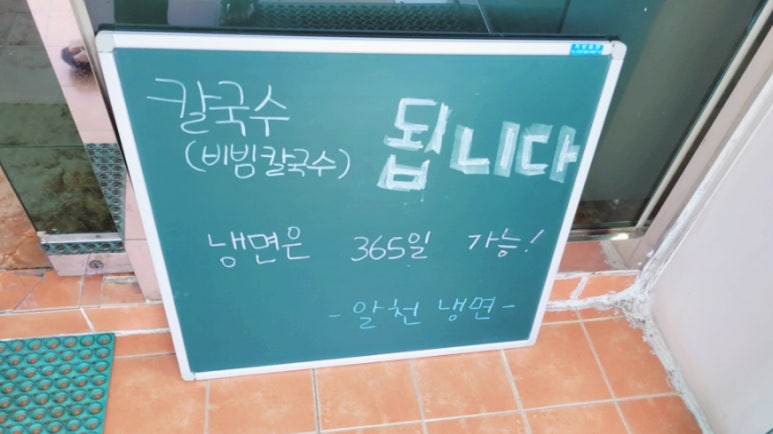 칼국수
(비빔칼국수)
됩니다
냉면은 365일 가능!
-알천 냉면-